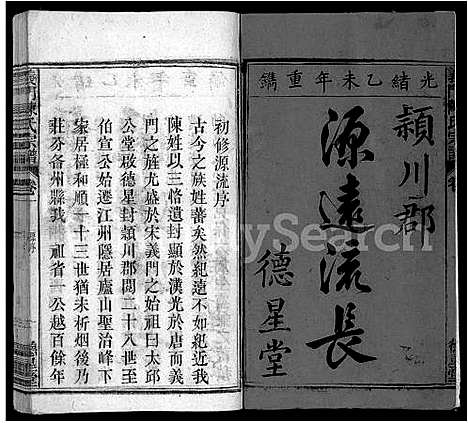 光緒乙未年重鐫
潁川郡
源遠流長
德星堂
初修源流序
古今之族姓蕃矣然紀遠不如紀近我
陳姓以三恪遺封顯於漢光於唐而義
門之旌尤盛於宋義門之始祖曰太邱
公堂啟德星封潁川郡閱二十八世至
伯宣公始遷江州隱居廬山聖治峰下
家居穆和順一十三世猶未析烟後乃
莊分各州縣我 祖省一公越百餘年
義門陳氏宗譜 卷